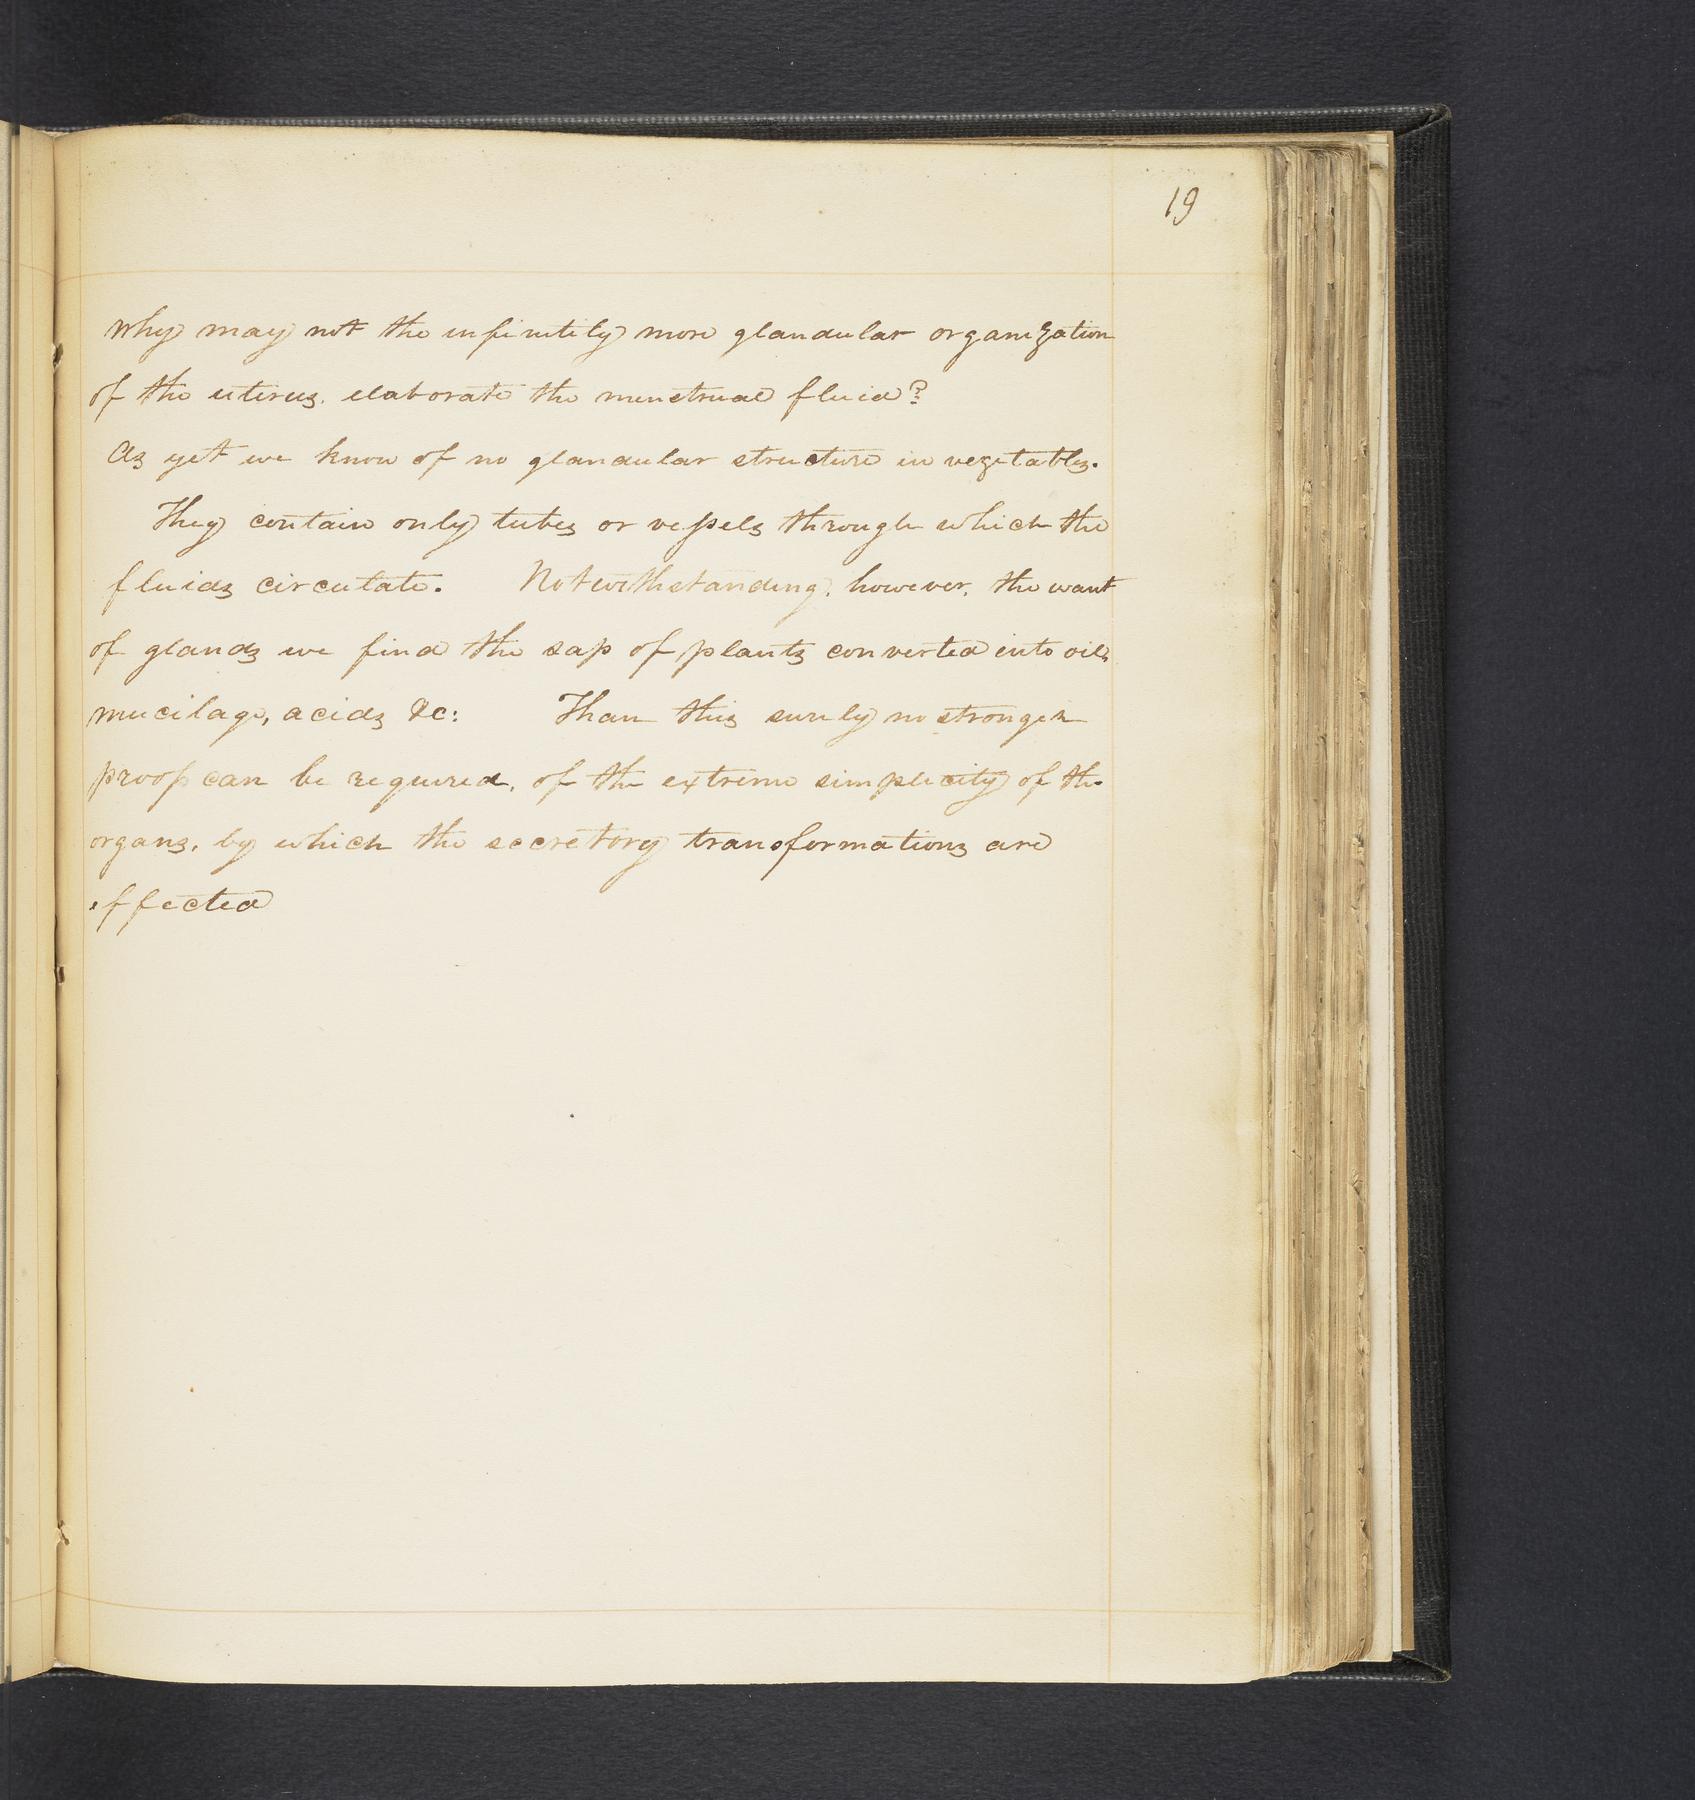 19
Why may not the infinitely more glandular organization
of the uterus, elaborate the menstrual fluid?
As yet we know of no glandular structure in vegetables.
They contain only tubes or vessels through which the
fluids circulate. Notwithstanding, however, the want
of glands we find the sap of plants converted into oils,
mucilage, acids &c: Than this surely no stronger
proof can be required, of the extreme simplicity of the
organs, by which the secretory transformations are
effected